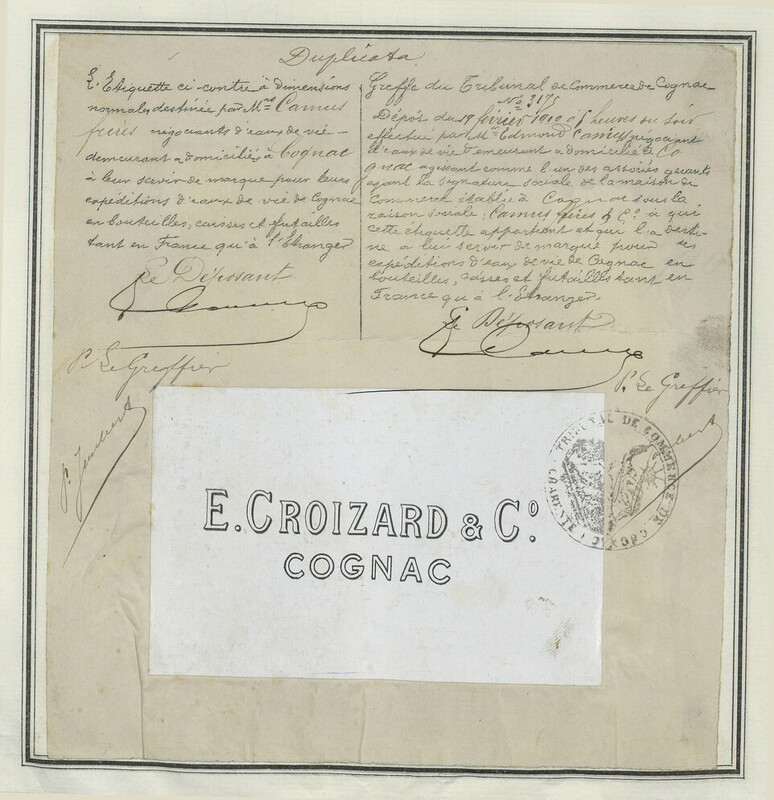 Duplicata
L'Etiquette ci-contre à dimensions
normales destinée par Mrs Camus
frères négociants d'eaux de vie
demeurant & domiciliés à Cognac
à leur servir de marque pour leurs
expéditions d'eaux de vie de Cognac
en bouteilles, caisses et futailles
tant en France qu'à l'Etranger
Le Déposant
P. Le Greffier
Greffe du Tribunal de Commerce de Cognac
No 3175
Dépôt du 19 février 1910 à 5 heures du soir
effectué par Mr Edmond Camus négociant
d'eaux de vie demeurant & domicilié à Co
gnac agissant comme l'un des associés gérants
ayant la signature sociale de la maison de
Commerce établie à Cognac sous la
raison sociale: Camus frères & Co à qui
cette étiquette appartient et qui l'a desti-
née à lui servir de marque pour ses
expéditions d'eaux de vie de Cognac en
bouteilles, caisses et futailles tant en
France qu'à l'Etranger.
Le Déposant
P. Le Greffier
TRIBUNAL DE COMMERCE DE COGNAC (CHARENTE)
E. CROIZARD & Co.
COGNAC